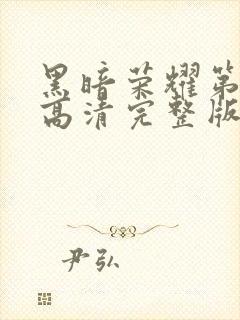 黑暗荣耀第
高清完整版
尹弘